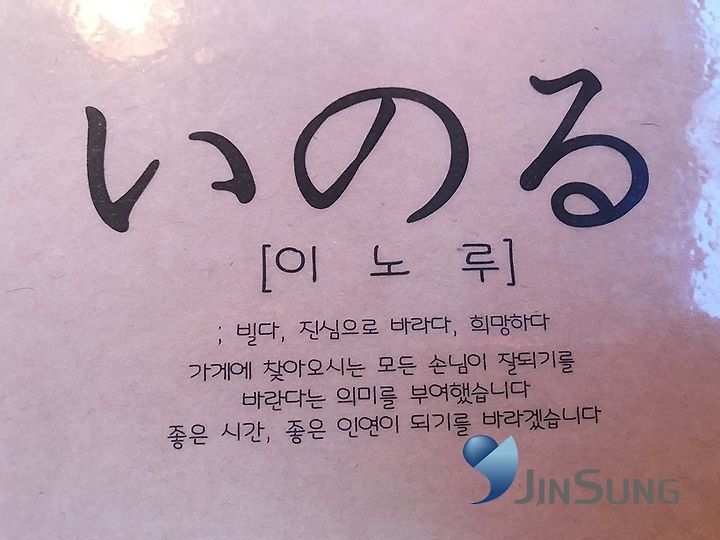 いのる
[이 노 루]
; 빌다, 진심으로 바라다, 희망하다
가게에 찾아오시는 모든 손님이 잘되기를
바란다는 의미를 부여했습니다
좋은 시간, 좋은 인연이 되기를 바라겠습니다
JINSUNG